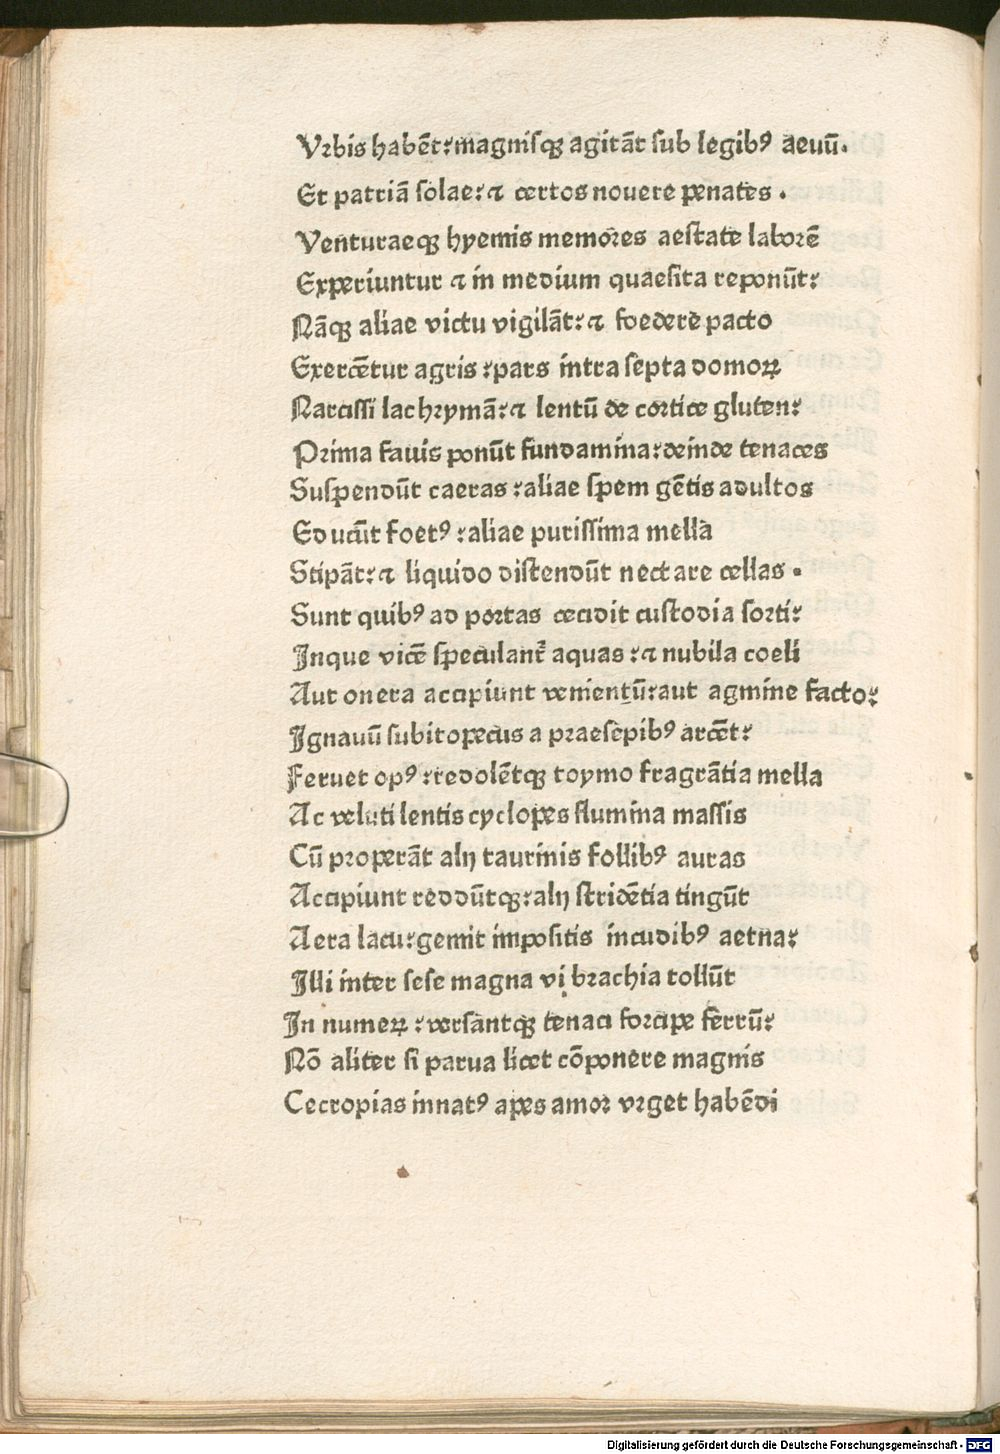 Vrbis habēt: magnisqꝫ agitāt sub legibꝰ aeuū.
Et patriā solae: ⁊ certos nouere penates .
Venturaeqꝫ hyemis memores aestate laborē
Experiuntur ⁊ in medium quaesita reponūt:
Nāqꝫ aliae victu vigilāt: ⁊ foedere pacto
Exercētur agris : pars intra septa domoꝝ
Narcissi lachrymā: ⁊ lentū de cortice gluten:
Prima fauis ponūt fundamina: deinde tenaces
Suspendūt caeras : aliae spem gētis adultos
Educūt foetꝰ : aliae purissima mella
Stipāt: ⁊ liquido distendūt nectare cellas .
Sunt quibꝰ ad portas cecidit custodia sorti:
Inque vicē speculant̃ aquas : ⁊ nubila coeli
Aut onera accipiunt venientū: aut agmine facto:
Ignauū subito pecus a praesepibꝰ arcēt:
Feruet opꝰ : redolētqꝫ toymo fragrātia mella
Ac veluti lentis cyclopes flumina massis
Cū properāt alij taurinis follibꝰ auras
Accipiunt reddūtqꝫ: alij stridētia tingūt
Aera lacu: gemit impositis incudibꝰ aetna:
Illi inter sese magna vi brachia tollūt
In numeꝝ : versantqꝫ tenaci forcipe ferrū:
Nō aliter si parua licet cōponere magnis
Cecropias innatꝰ apes amor vrget habēdi
Digitalisierung gefördert durch die Deutsche Forschungsgemeinschaft - DFG